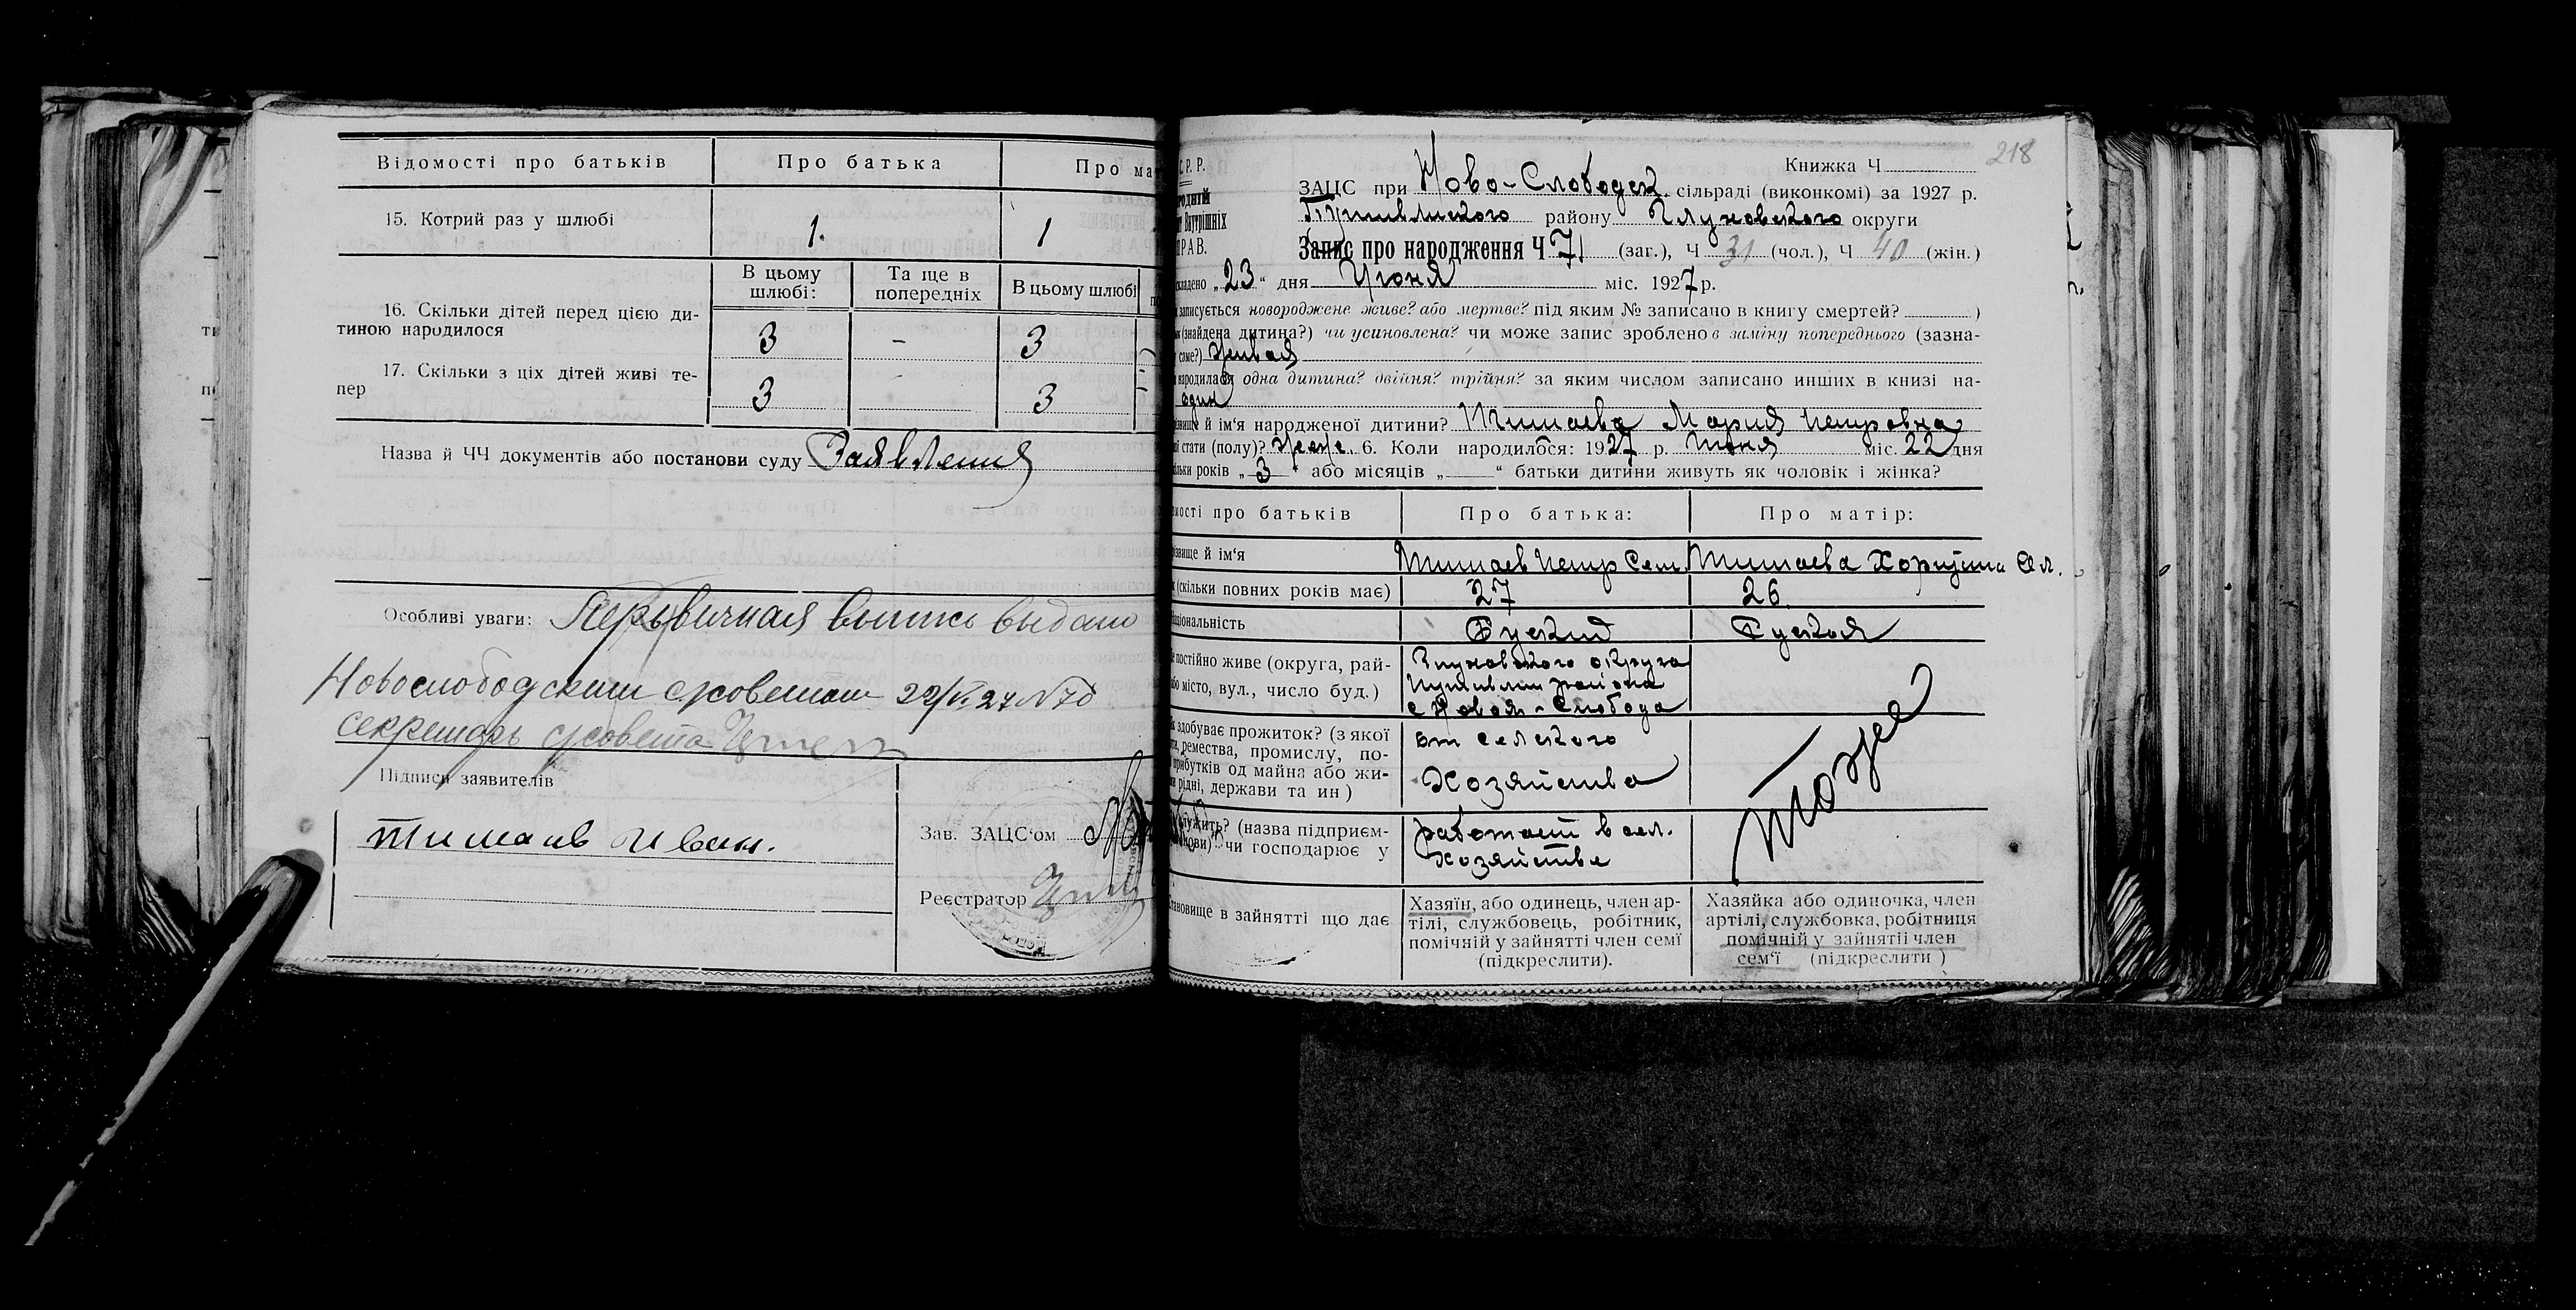 Відомості про батьків
Про батька
Про ма
15. Котрий раз у шлюбі
1.
1
В цьому шлюбі:
Та ще в попередніх
В цьому шлюбі
16. Скільки дітей перед цією ди-
тиною народилося
3
-
3
17. Скільки з ціх дітей живі те-
пер
3
3
Назва й ЧЧ документів або постанови суду Заявления
Особливі уваги: Первичная выпись выдано
Новослободским с/советом 22/VI 27 N 70
секретарь с/совета
Підписи заявителів
Тимаев Иван.
Зав. ЗАЦС‘ом
Реєстратор
218
С. Р. Р.
Книжка Ч
ЗАЦС при Ново-Слободск. сільраді (виконкомі) за 1927 р.
Внутрішніх
Путивльского району Глуховского округи
ПРАВ.
Запис про народження Ч 71 (заг.), Ч 31 (чол.), Ч 40 (жін.)
кладено „23“ дня Июня міс. 1927 р.
записується новороджене живе? або мертве? під яким № записано в книгу смертей? )
(знайдена дитина?) чи усиновлена? чи може запис зроблено в заміну попереднього (зазна-
саме?) живая
народилася одна дитина? двійня? трійня? за яким числом записано инших в книзі на-
один
звище й ім‘я народженої дитини? Тимаева Мария Петровна
стати (полу)? женс. 6. Коли народилося: 1927 р. Июня міс. 22 дня
ільки років „3“ або місяців „ “ батьки дитини живуть як чоловік і жінка?
мості про батьків
Про батька:
Про матір:
звище й ім‘я
Тимаев Петр Сем.
Тимаева Харитина Ал.
(скільки повних років має)
27
26.
аціональність
Руский
Руская
постійно живе (округа, рай-
або місто, вул., число буд.)
Глуховского округа
Путивльск района
с Новая-Слобода
здобуває прожиток? (з якої
ремества, промислу, по-
прибутків од майна або жи-
рідні, держави та ин)
от селского
Хозяйства
тоже
служить? (назва підприєм-
чи господарює у
работает в сел.
хозяйстве
тановище в зайнятті що дає
Хазяїн, або одинець, член ар-
тілі, службовець, робітник,
помічній у зайнятті член семї
(підкреслити).
Хазяйка або одиночка, член
артілі, службовка, робітниця
помічній у зайнятії член
сем‘ї (підкреслити)